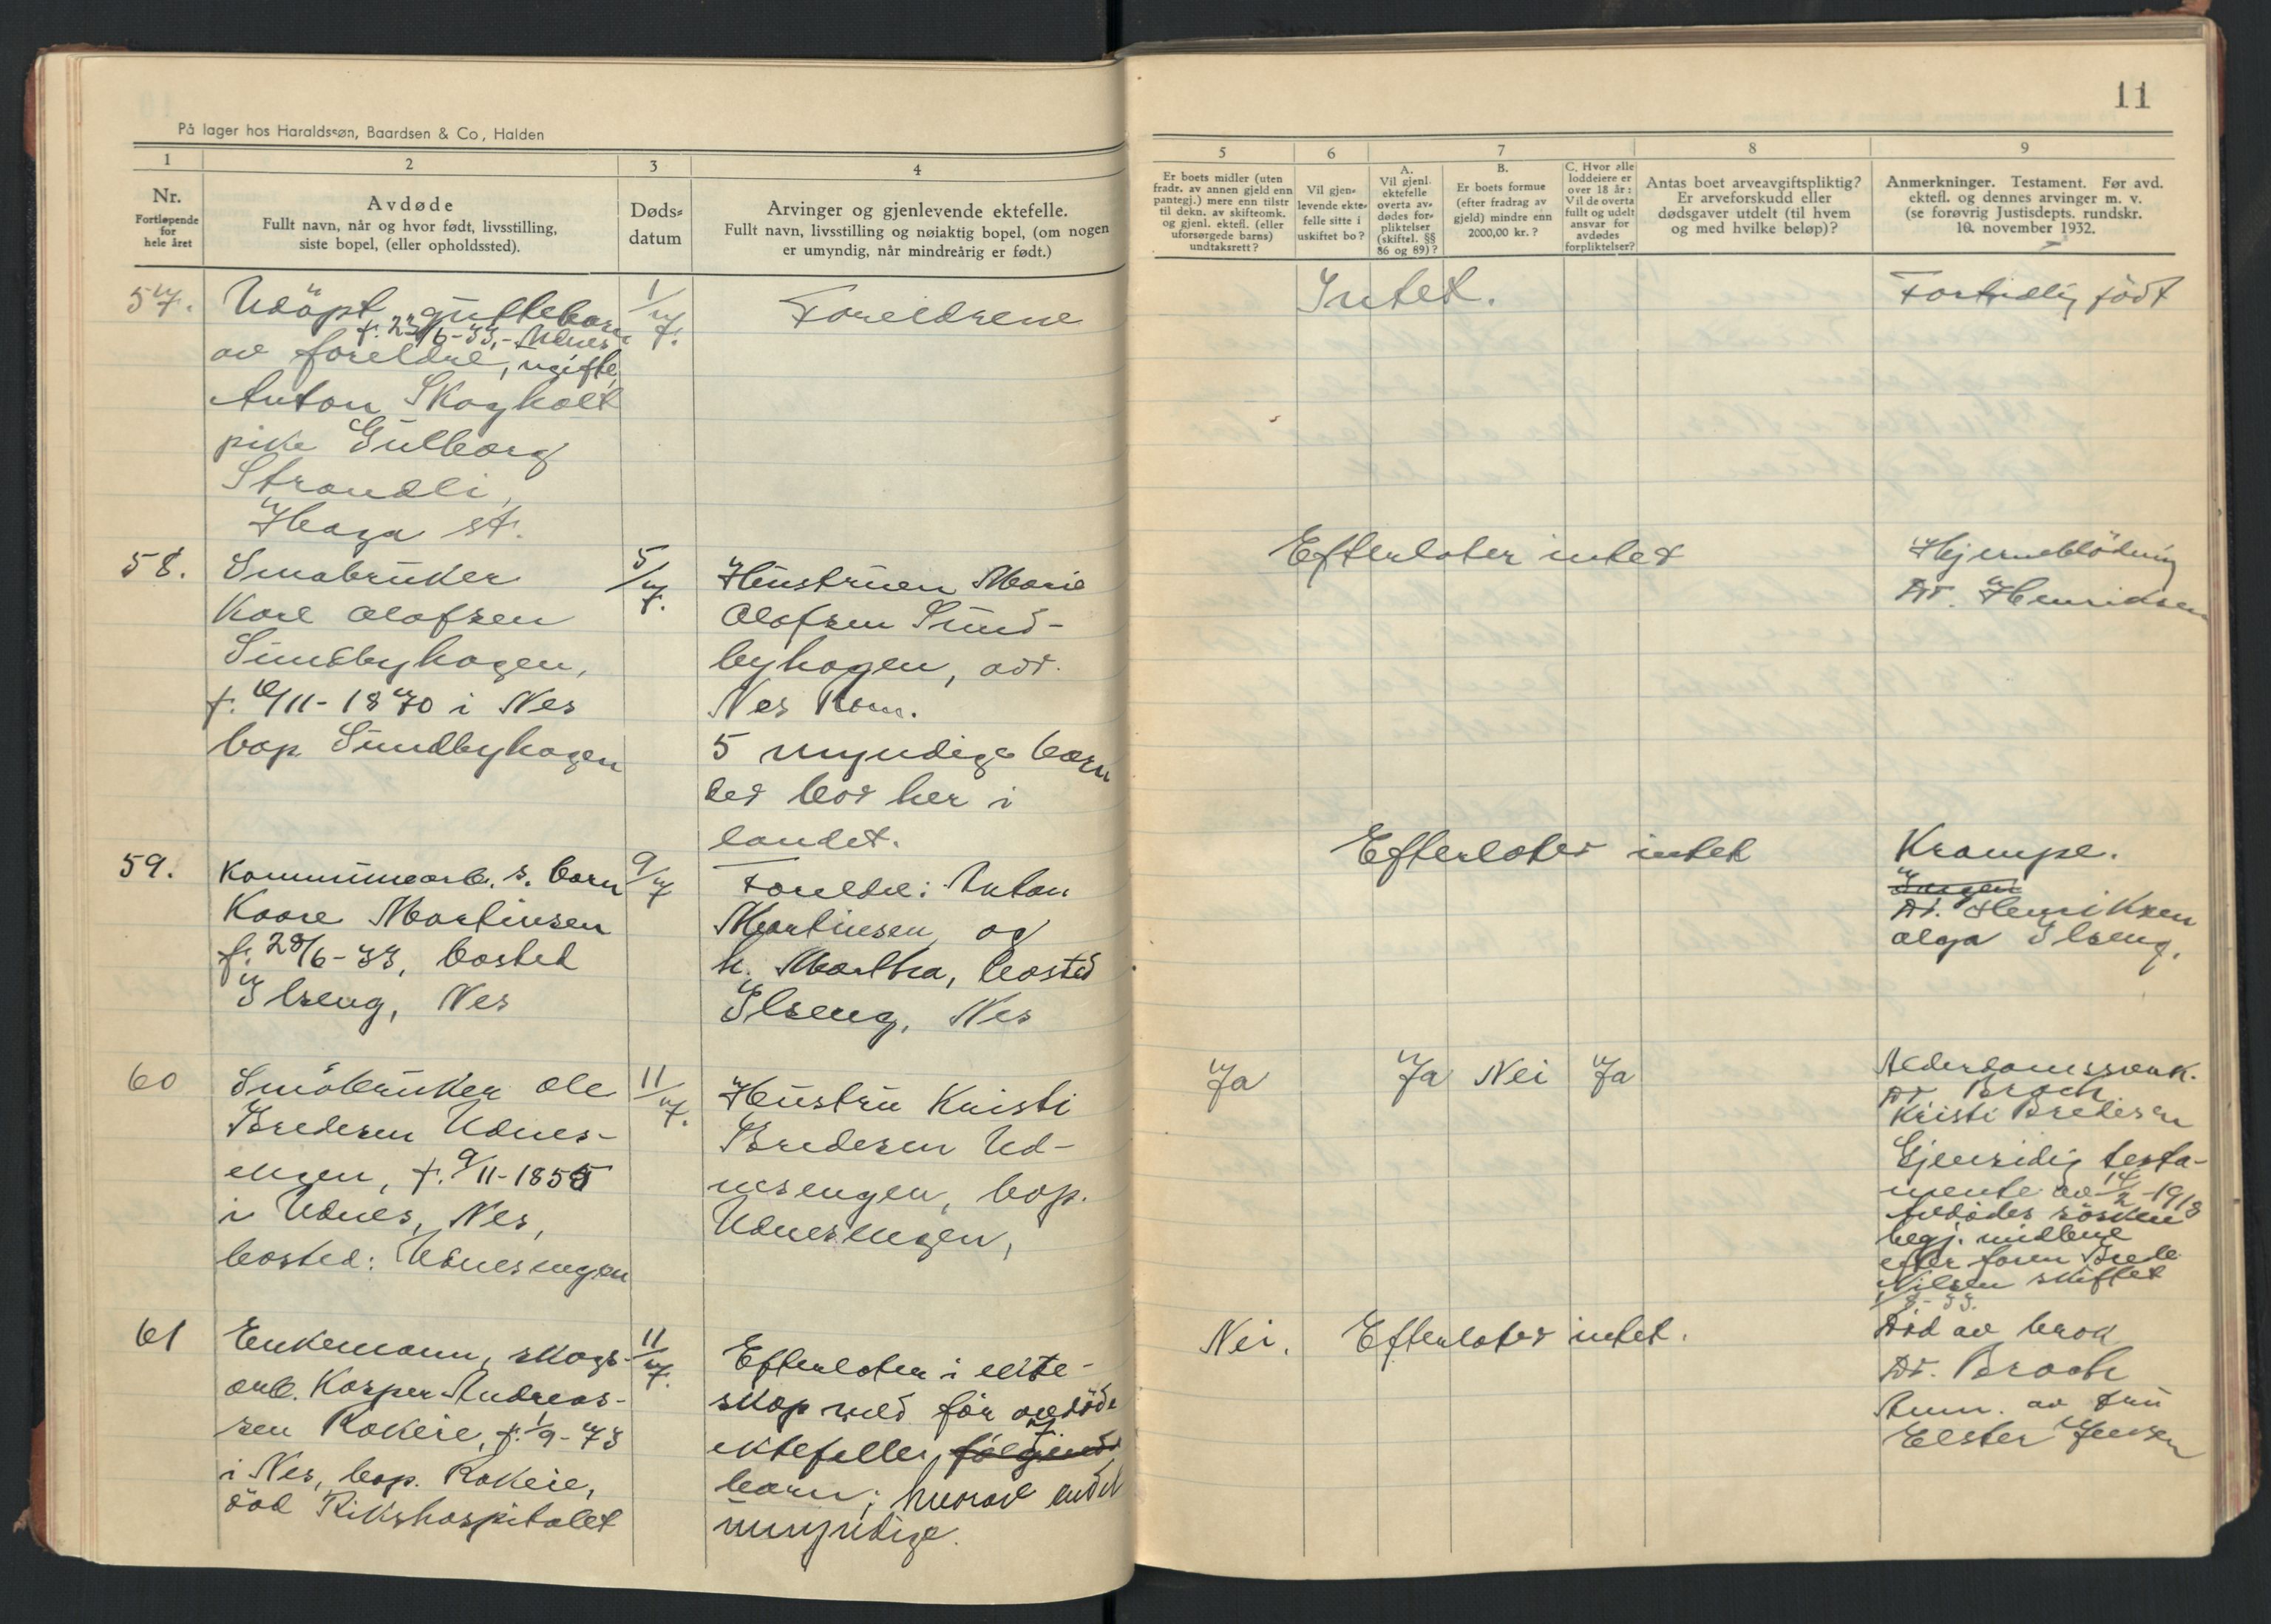 På lager hos Haraldssøn, Baardsen & Co, Halden
1
2
3
4
Nr.
Fortløpende
for
hele året
Avdøde
Fullt navn, når og hvor født, livsstilling,
siste bopel, (eller opholdssted).
Døds-
datum
Arvinger og gjenlevende ektefelle.
Fullt navn, livsstilling og nøiaktig bopel, (om nogen
er umyndig, når mindreårig er født.)
57.
Udöpt guttebarn
f. 23/6-33,- Udnes
av foreldre, ugifte,
Anton Skogholt
pike Gulborg
Strandli,
Haga st.
1/7.
Foreldrene
58.
Småbruker
Karl Olafsen
Sundbyhagen,
f. 10/11-1870 i Nes
bop. Sundbyhagen
5/7.
Hustruen Marie
Olafsen Sund-
byhagen, adr.
Nes Rom.
5 myndige barn
der bor her i
landet.
59.
Kommunearb. s. barn
Kaare Martinsen
f. 28/6-33, bosted
Ilseng, Nes
9/7
Foreldre: Anton
Martinsen og
h. Martha, bosted
Ilseng, Nes
60
Småbruker Ole
Bredesen Udnes-
engen, f. 9/11-1855
i Udnes, Nes,
bosted: Udnesengen
11/7.
Hustru Kristi
Bredesen Ud-
nesengen, bop.
Udnesengen,
61
Enkemann, skogs-
arb. Kasper Andreas-
sen Rokeie, f. 1/9-73
i Nes, bop. Rokeie,
död Rikshospitalet
11/7.
Efterlater i ekte-
skap medför avdöde
ektefelle, 7 følgende
barn; hvorav endel
umyndige.
11
5
6
7
8
9
Er boets midler (uten
fradr. av annen gjeld enn
pantegj.) mere enn tilstr
til dekn. av skifteomk.
og gjenl. ektefl. (eller
uforsørgede barns)
undtaksrett?
Vil gjen-
levende ekte-
felle sitte i
uskiftet bo?
A.
Vil gjenl.
ektefelle
overta av-
dødes for-
pliktelser
(skiftel. §§
86 og 89)?
B.
Er boets formue
(efter fradrag av
gjeld) mindre enn
2000,00 kr.?
C. Hvor alle
loddeiere er
over 18 år:
Vil de overta
fullt og udelt
ansvar for
avdødes
forpliktelser?
Antas boet arveavgiftspliktig?
Er arveforskudd eller
dødsgaver utdelt (til hvem
og med hvilke beløp)?
Anmerkninger. Testament. Før avd.
ektefl. og dennes arvinger m. v.
(se forøvrig Justisdepts. rundskr.
10. november 1932.
Intet.
Fortidlig födt
Efterlater intet
Hjerneblödning
Dr. Henriksen
Efterlater intet
Krampe.
Dr. Henriksen
Olga Ilseng.
Ja
Ja
Nei
Ja
Alderdomssvak.
Dr. Broch
Kristi Bredesen
Gjensidig testa-
mente av 14/2-1918
Avdödes sösken
begj. midlene
efter faren Brede
Nilsen skiftet
1/8-33.
Nei.
Efterlater intet.
Död av brok
Dr. Broch
Anm. av fru
Elster Jensen